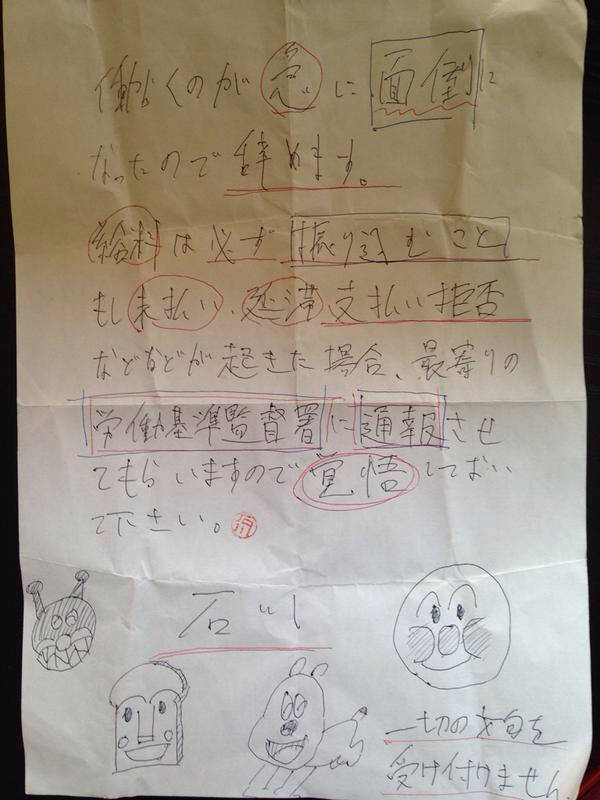 働くのが急に面倒に
なったので辞めます。
給料は必ず振り込むこと
もし未払い、延滞支払い拒否
などなどが起きた場合、最寄りの
労働基準監督署に通報させ
てもらいますので覚悟しておい
て下さい。
石川
一切の文句を
受け付けません。